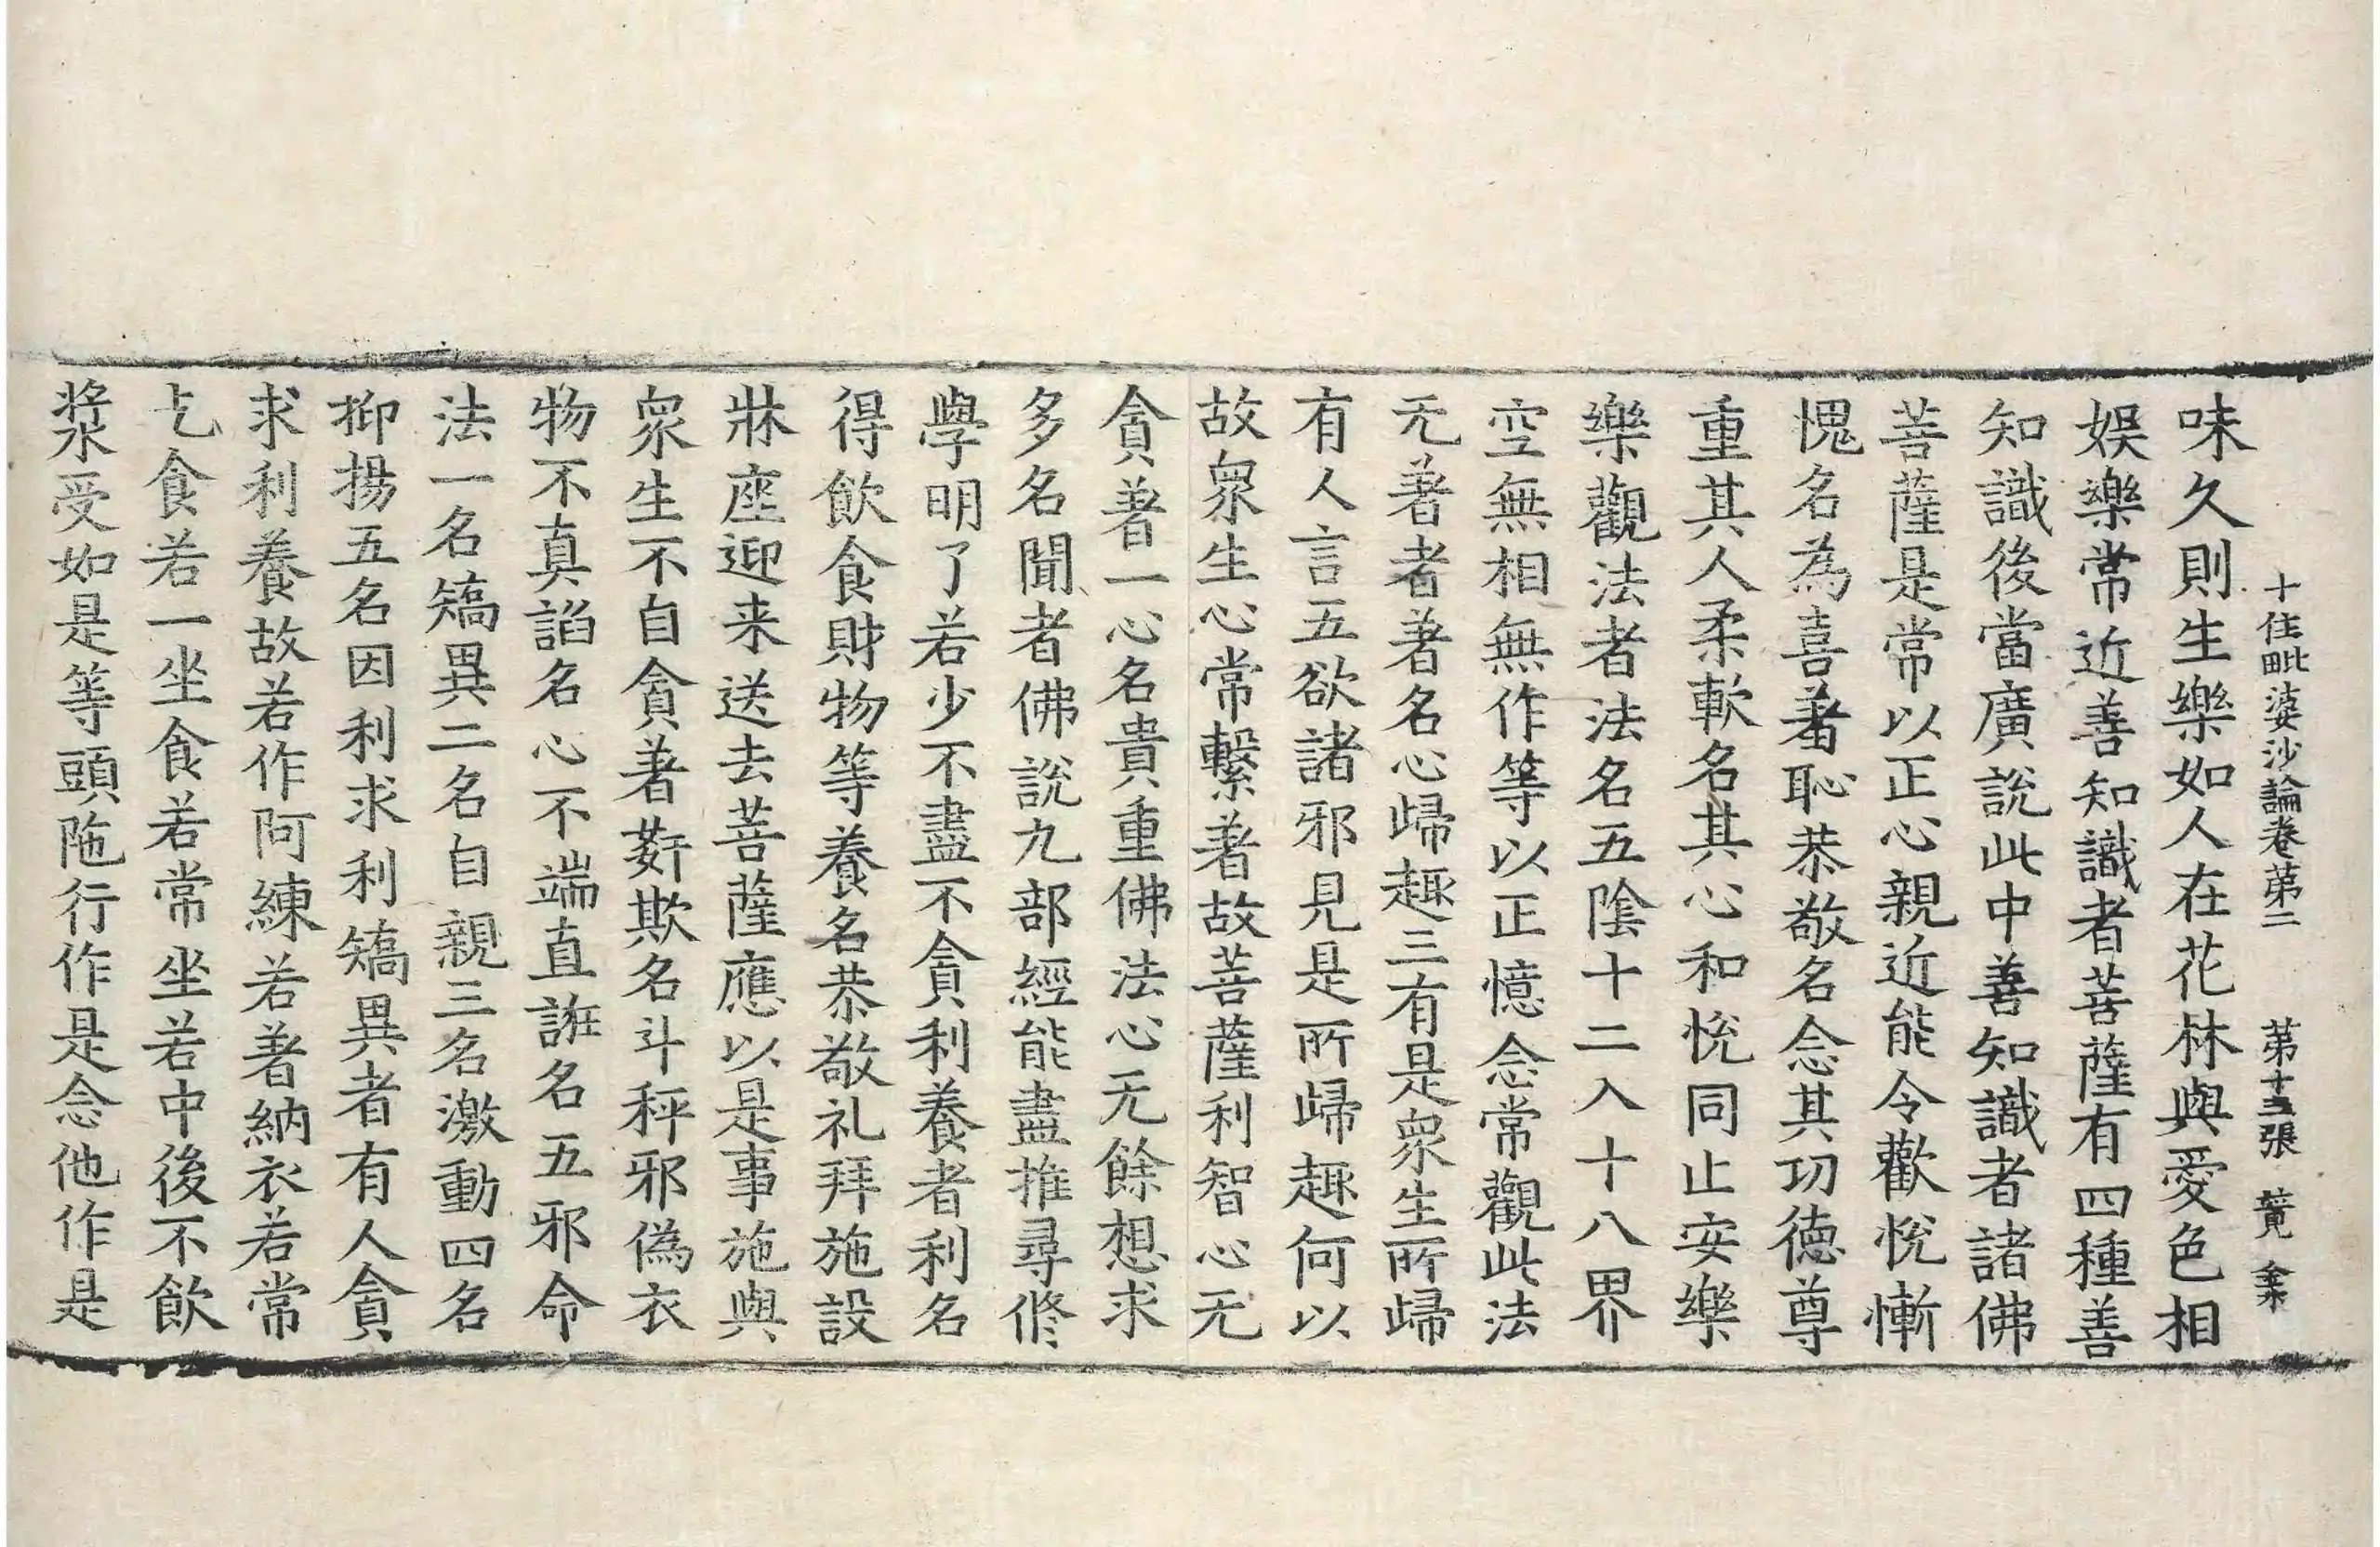 十住毗婆沙論卷苐二　苐十三張　賛
味久則生樂如人在花林與愛色相
娛樂常近善知識者菩薩有四種善
知識後當廣說此中善知識者諸佛
菩薩是常以正心親近能令歡悅慚
愧名為喜著恥恭敬名念其功德尊
重其人柔軟名其心和悅同止安樂
樂觀法者法名五陰十二入十八界
空無相無作等以正憶念常觀此法
无著者著名心歸趣三有是衆生所歸
有人言五欲諸邪見是所歸趣何以
故衆生心常繫著故菩薩利智心无
貪著一心名貴重佛法心无餘想求
多名聞者佛說九部經能盡推尋修
學明了若少不盡不貪利養者利名
得飮食財物等養名恭敬礼拜施設
牀座迎来送去菩薩應以是事施與
衆生不自貪著姧欺名斗秤邪僞衣
物不真諂名心不端直誑名五邪命
法一名矯異二名自親三名激動四名
抑揚五名因利求利矯異者有人貪
求利養故若作阿練若著納衣若常
乞食若一坐食若常坐若中後不飮
漿受如是等頭陁行作是念他作是